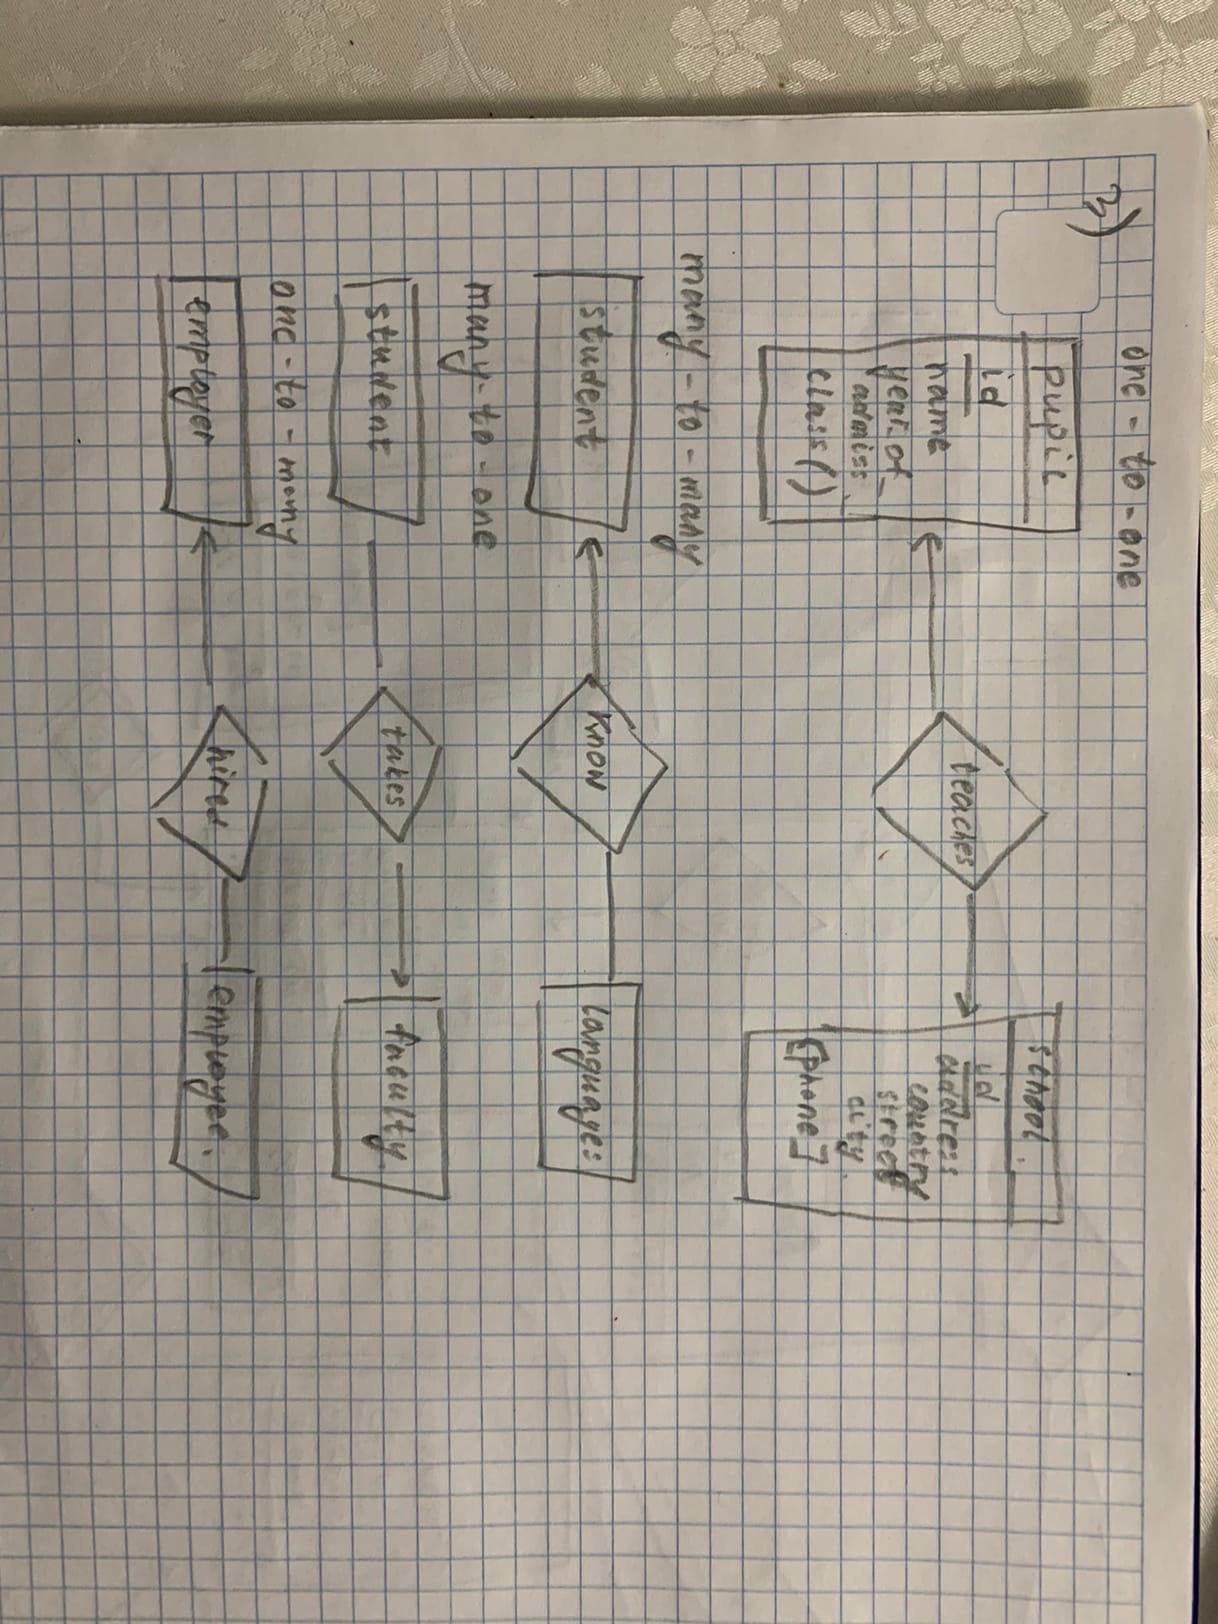 3)
one-to-one
pupil
id
name
year_of_
admiss.
class()
teaches
school.
id
address
country
street
city.
[phone]
many-to-many
student
know
languages
many-to-one
student
takes
faculty
one-to-many
employer
hired
employee.